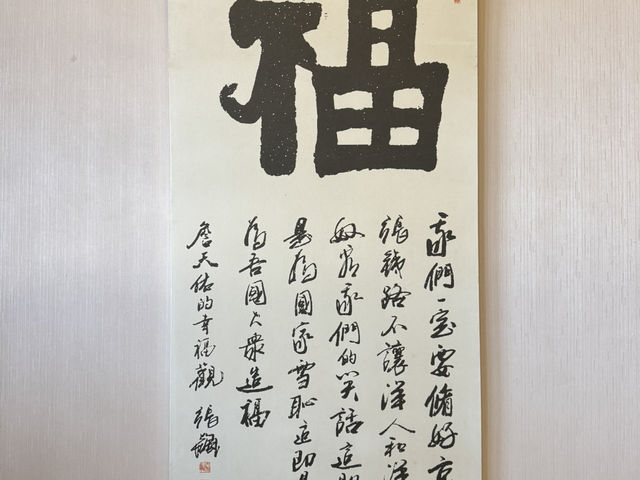 福
我們一定要脩好京
張鐵路不讓洋人和洋
奴看我們的笑話這即
是為國家雪恥這即是
為吾國大眾造福
詹天佑的幸福觀 張飆